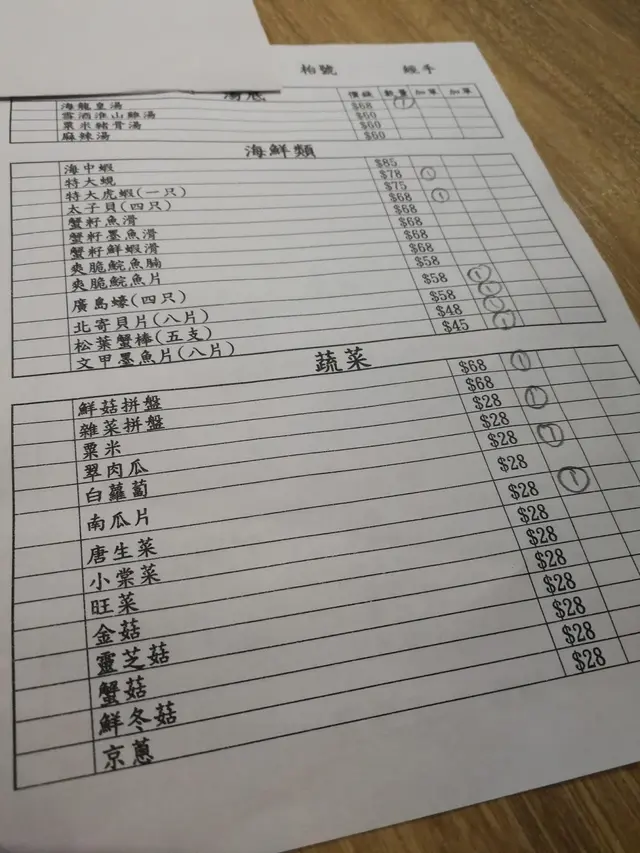 枱號 經手
價錢 數量 加單 加單
海龍皇湯 $68 ①
雪酒淮山雞湯 $60
粟米豬骨湯 $60
麻辣湯 $60
海鮮類
海中蝦 $85
特大蜆 $78 ①
特大虎蝦(一只) $75
太子貝(四只) $68 ①
蟹籽魚滑 $68
蟹籽墨魚滑 $68
蟹籽鮮蝦滑 $68
爽脆鯇魚腩 $68
爽脆鯇魚片 $58
廣島蠔(四只) $58 ①
北寄貝片(八片) $58 ①
松葉蟹棒(五支) $48 ①
文甲墨魚片(八片) $45 ①
蔬菜
鮮菇拼盤 $68 ①
雜菜拼盤 $68
粟米 $28 ①
翠肉瓜 $28
白蘿蔔 $28 ①
南瓜片 $28
唐生菜 $28 ①
小棠菜 $28
旺菜 $28
金菇 $28
靈芝菇 $28
蟹菇 $28
鮮冬菇 $28
京蔥 $28